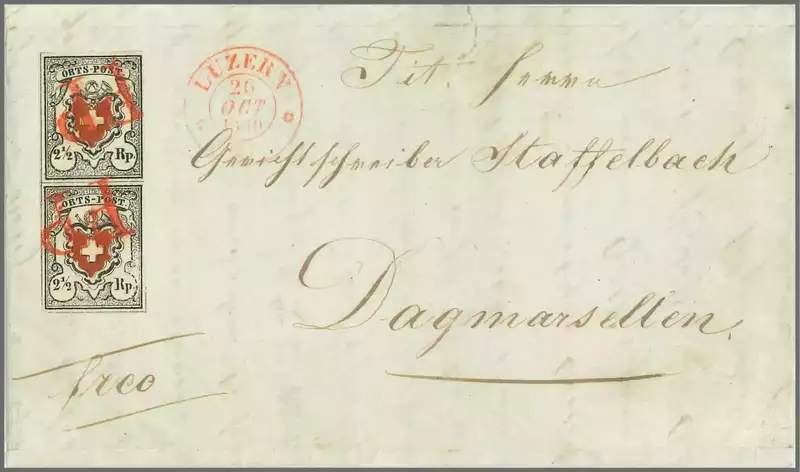 ORTS-POST
2½ Rp.
P.P.
ORTS-POST
2½ Rp.
P.P.
LUZERN
26
OCT
Tit. Herrn
Gerichtschreiber Staffelbach
Dagmarsellen.
frco